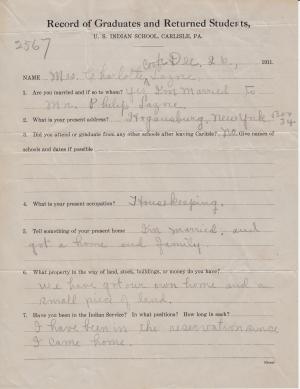 Record of Graduates and Returned Students,
U. S. INDIAN SCHOOL, CARLISLE, PA.
2567
Dec, 26, 1911.
NAME Mrs. Charlotte
1. Are you married and if so to whom? Yes I'm Married to
Mr. Philip
2. What is your present address? Hogansburg, New York Box
34
3. Did you attend or graduate from any other schools after leaving Carlisle? No. Give names of
schools and dates if possible
4. What is your present occupation? Housekeeping.
5. Tell something of your present home I'm married, and
got a home and family
6. What property in the way of land, stock, buildings, or money do you have?
We have got our own home and a
small piece of land.
7. Have you been in the Indian Service? In what positions? How long in each?
I have been in the reservation since
I came home.